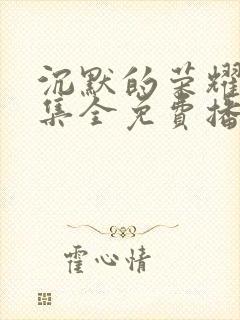 沉默的荣耀
集全免費播
霍心情